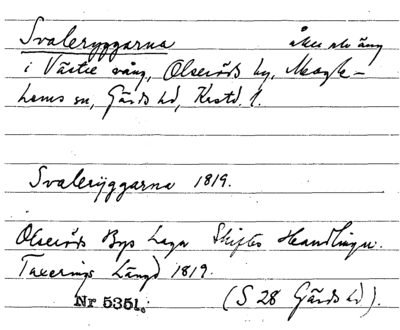 Svaleryggarna åker o äng
i Västre vång, Olseröds by, Maglehems sn, Gärds hd, Krstd. l.
Svalerÿggarna 1819.
Olseröds Bys Laga Skiftes Handlingar.
Taxerings Längd 1819.
Nr 5351. (S 28 Gärds hd).